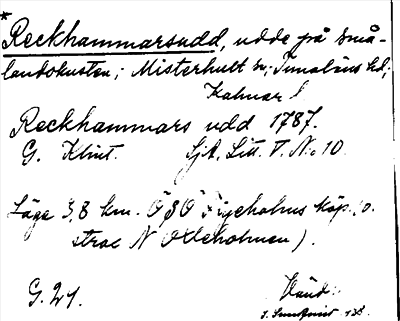 *
Reckhammarsudd, udde på Små-
landskusten; Misterhult sn; Tunaläns hd;
Kalmar l
Reckhammars udd 1787.
G. Klint. Sjk, Litt. T. No 10.
Läge 3,8 km. ÖSÖ Figeholms köp. (o.
strax N Oxleholmen).
G. 21.
Vänd: